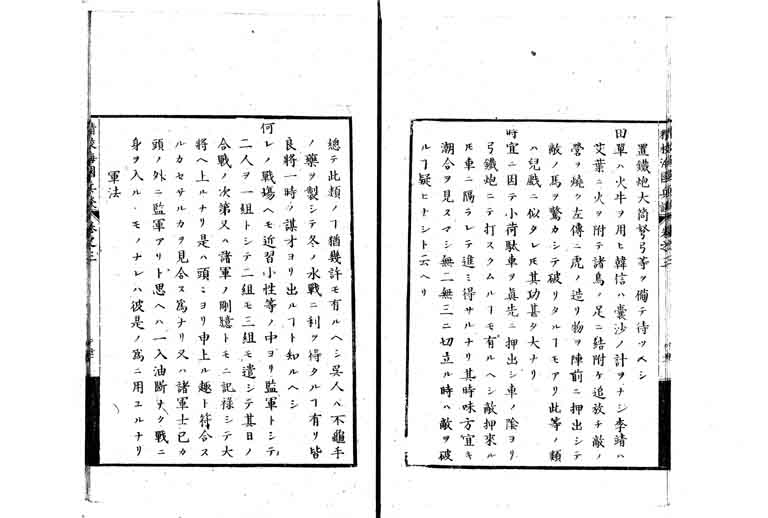 置鐵炮大筒弩弓等ヲ備テ待ツヘシ
田單ハ火牛ヲ用ヒ韓信ハ嚢沙ノ計ヲナシ李靖ハ
艾葉ニ火ヲ附テ諸鳥ノ足ニ結附ケ追放チ敵ノ
營ヲ燒ク左傳ニ虎ノ造リ物ヲ陣前ニ押出シテ
敵ノ馬ヲ驚カシテ破リタルヿモアリ此等ノ類
ハ兒戯ニ似タレ𪜈其功甚タ大ナリ
時宜ニ因テ小荷駄車ヲ眞先ニ押出シ車ノ陰ヨリ
弓鐵炮ニテ打スクムルヿモ有ルヘシ敵押來ル
𪜈車ニ隔ラレテ進ミ得サルナリ其時味方宜キ
潮合ヲ見スマシ無二無三ニ切立ル時ハ敵ヲ破
ルヿ疑ヒナシト云ヘリ
總テ此類ノヿ猶幾許モ有ルヘシ吳人ハ不龜手
ノ藥ヲ製シテ冬ノ水戰ニ利ヲ得タルヿ有リ皆
良將一時ノ謀才ヨリ出ルヿト知ルヘシ
何レノ戰場ヘモ近習小性等ノ中ヨリ監軍トシテ
二人ヲ一組トシテ二組モ三組モ遣シテ其日ノ
合戰ノ次第又ハ諸軍ノ剛臆トモニ記祿シテ大
將ヘ上ルナリ是ハ頭〻ヨリ申上ル趣ト符合ス
ルカセサルカヲ見合ス爲ナリ又ハ諸軍士已カ
頭ノ外ニ監軍アリト思ヘハ一入油断ナク戰ニ
身ヲ入ルヽモノナレハ彼是ノ爲ニ用ユルナリ
軍法